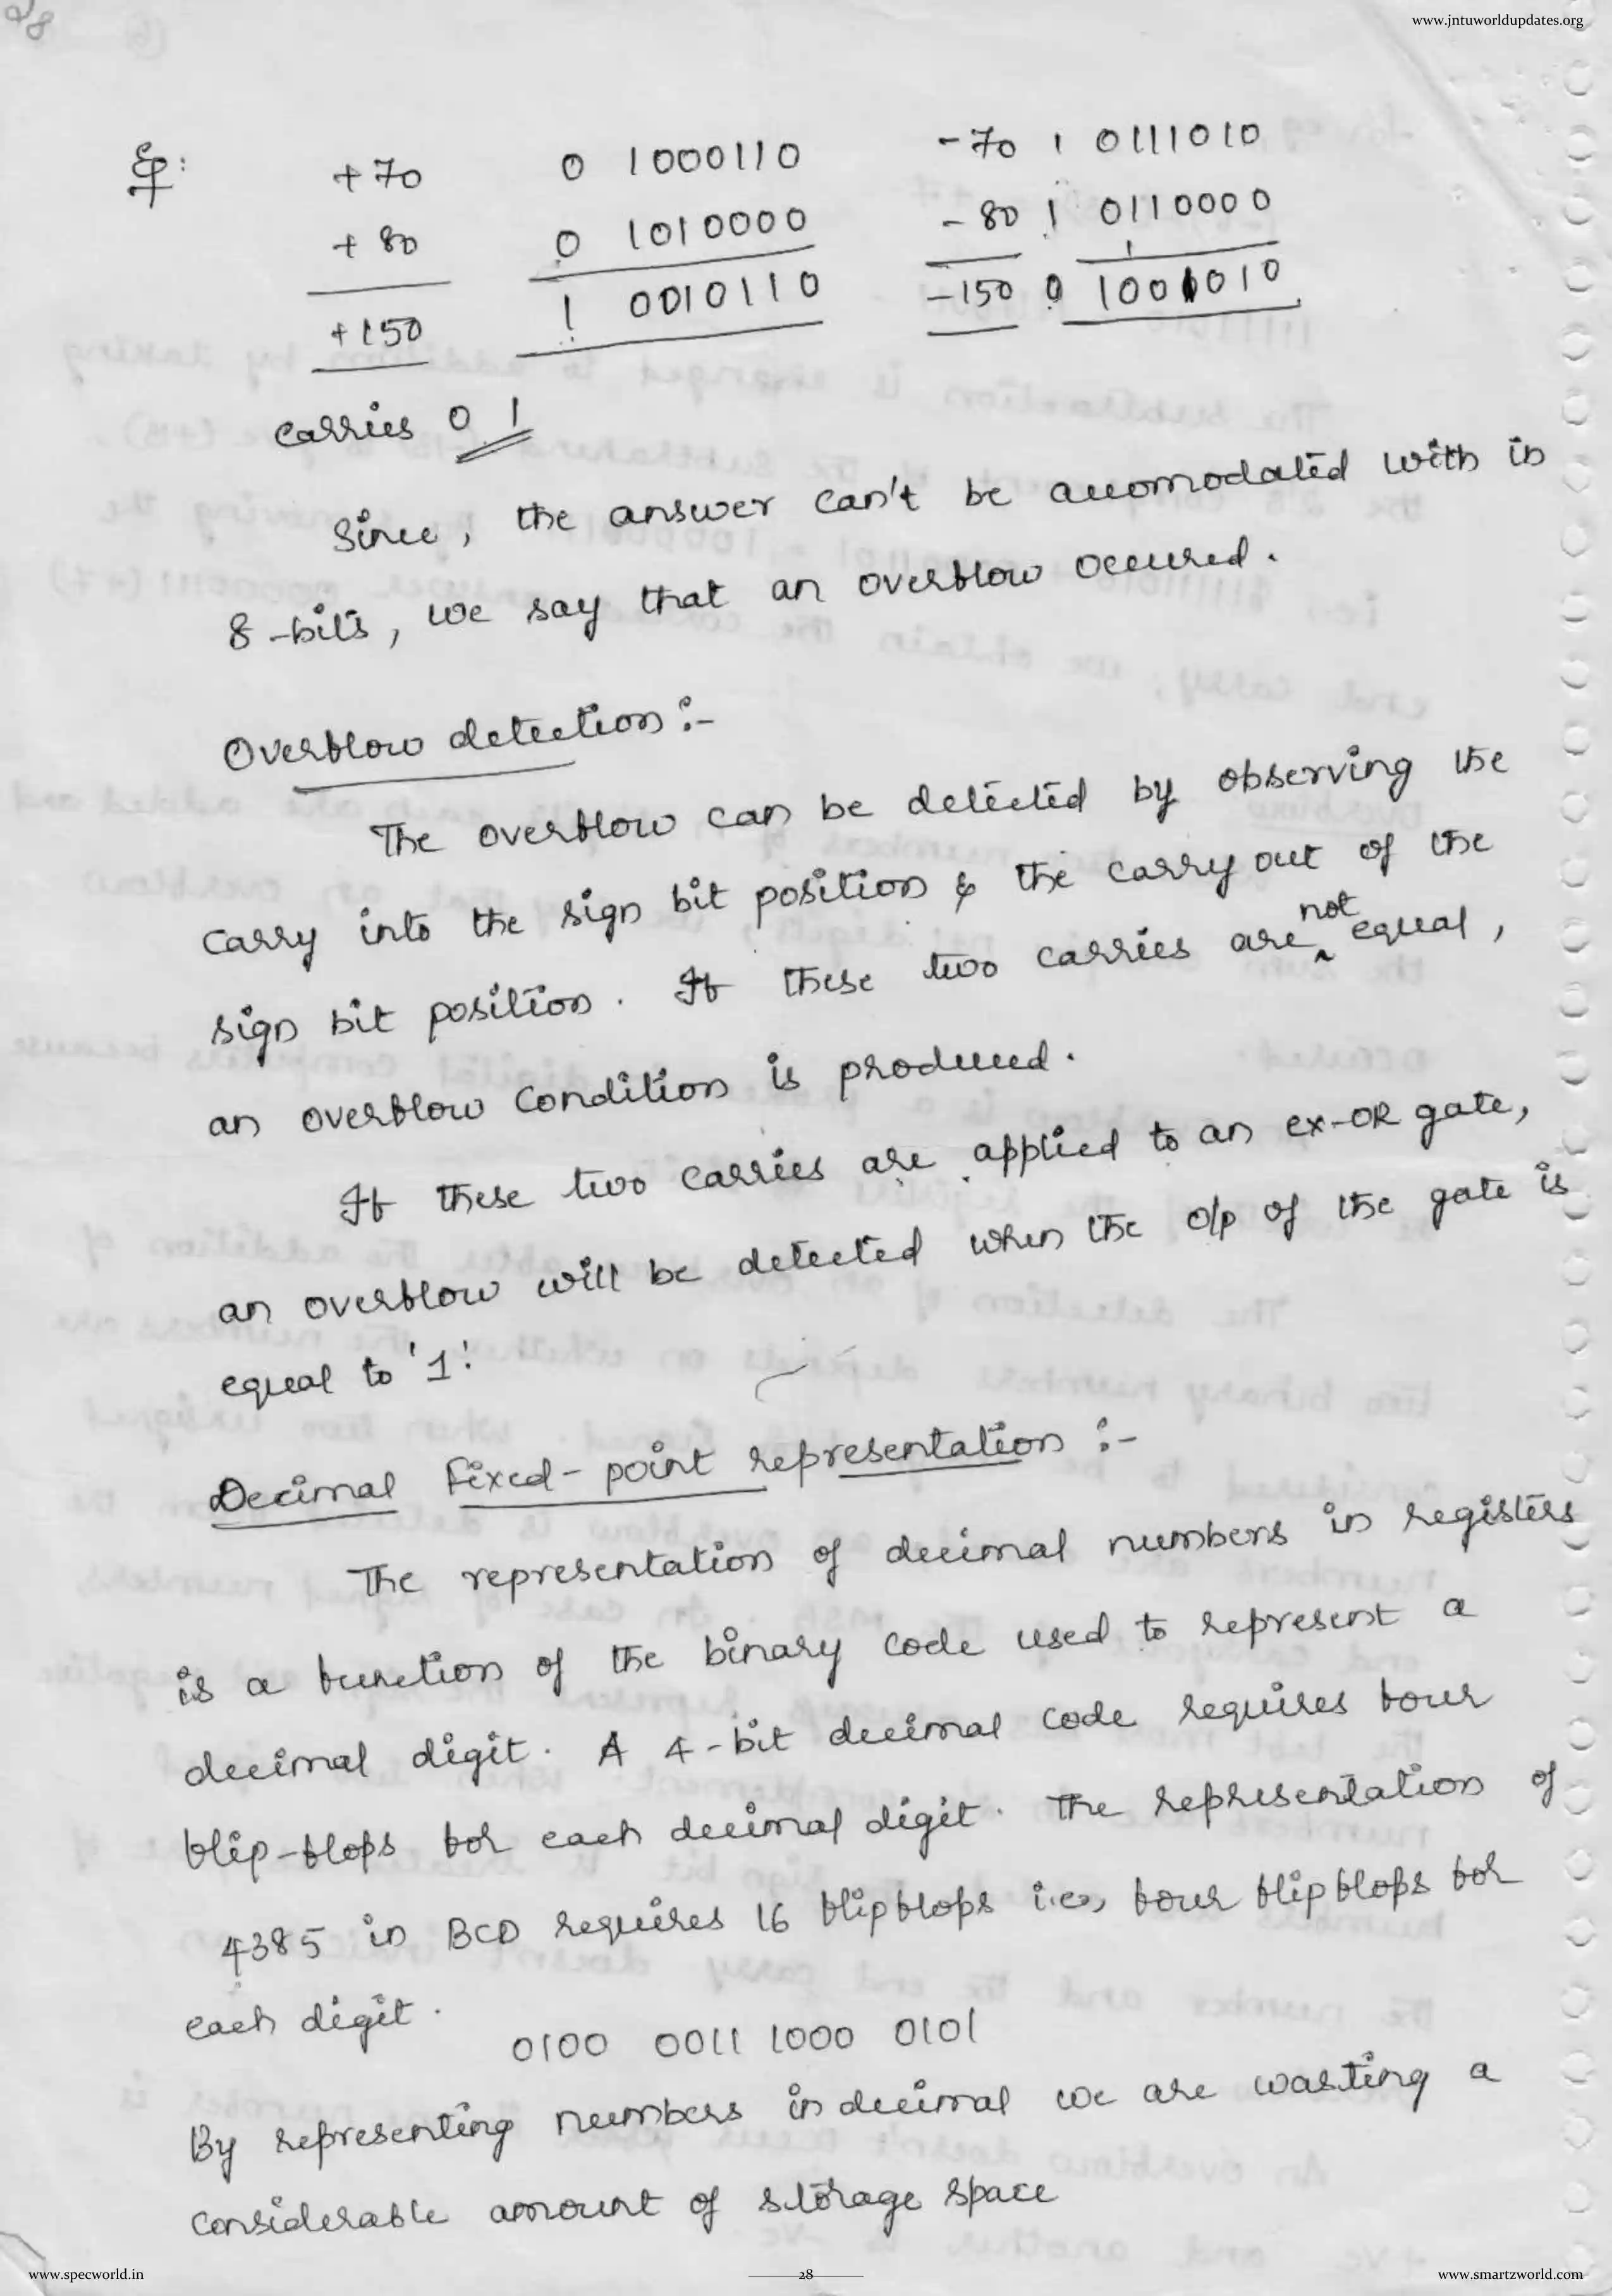 28
www.jntuworldupdates.org
Eg:
+70 0 1000110 -70 1 0111010
+80 0 1010000 -80 1 0110000
+150 1 0010110 -150 0 1001010
carries 0 1
Since, the answer can't be accomodated with in
8-bits, we say that an overflow occured.
Overflow detection :-
The overflow can be detected by observing the
carry into the sign bit position & the carry out of the
sign bit position. If these two carries are not equal,
an overflow condition is produced.
If these two carries are applied to an ex-OR gate,
an overflow will be detected when the o/p of the gate is
equal to '1'.
Decimal fixed-point representation :-
The representation of decimal numbers in registers
is a function of the binary code used to represent a
decimal digit. A 4-bit decimal code requires four
flip-flops for each decimal digit. The representation of
4385 in BCD requires 16 flipflops i.e., four flipflops for
each digit.
0100 0011 1000 0101
By representing numbers in decimal we are wasting a
considerable amount of storage space
www.specworld.in
28
www.smartzworld.com